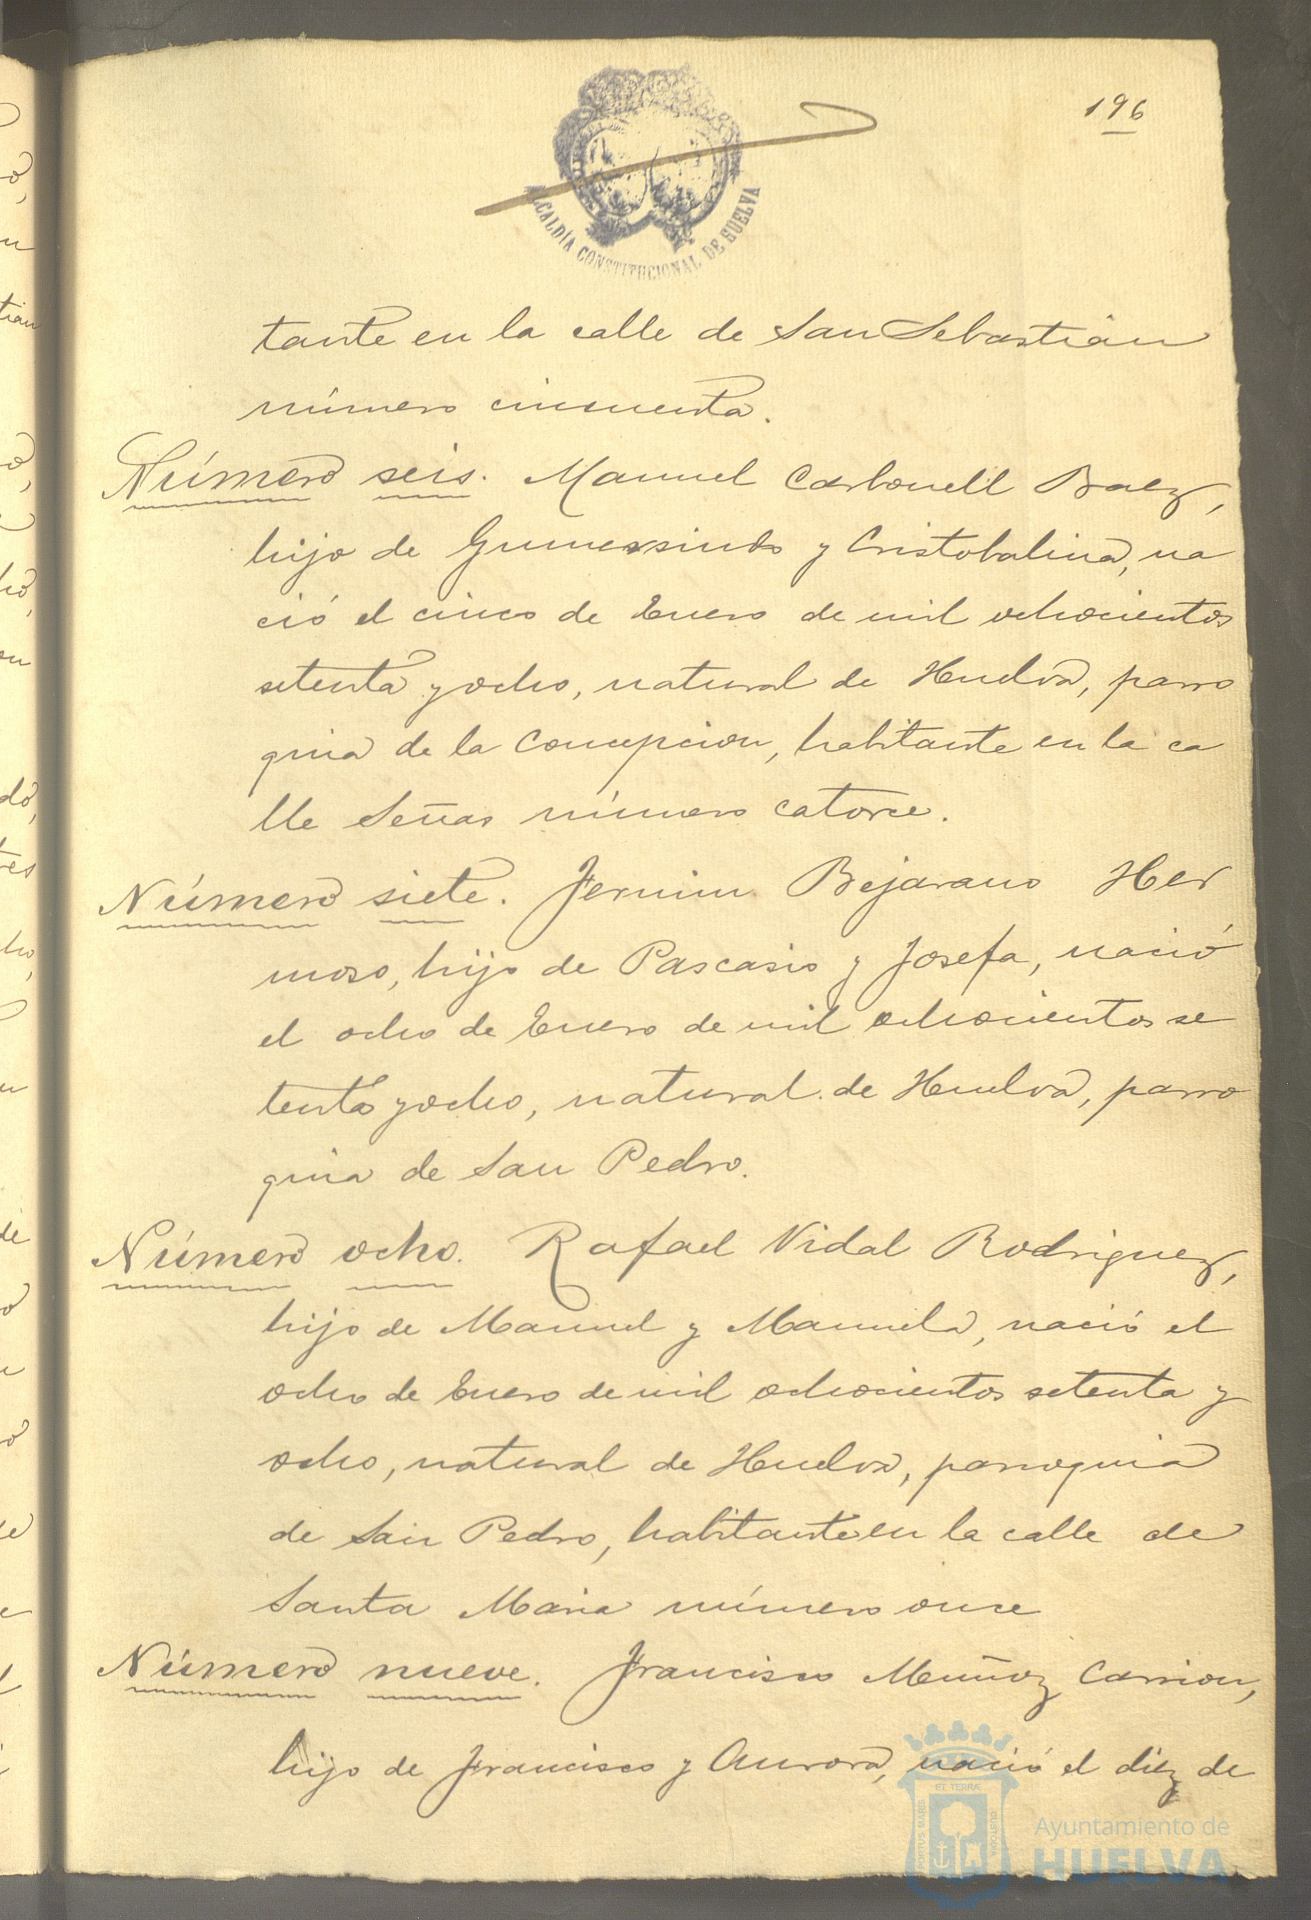 196
ALCALDÍA CONSTITUCIONAL DE HUELVA
tante en la calle de San Sebastián
número cincuenta.
Número seis. Manuel Carbonell Baez,
hijo de Gumersindo y Cristobalina, na
ció el cinco de Enero de mil ochocientos
setenta y ocho, natural de Huelva, parro
quia de la Concepcion, habitante en la ca
lle Señas número catorce.
Número siete. Fermin Bejarano Her
moso, hijo de Pascasio y Josefa, nació
el ocho de Enero de mil ochocientos se
tenta y ocho, natural de Huelva, parro
quia de San Pedro.
Número ocho. Rafael Vidal Rodriguez,
hijo de Manuel y Manuela, nació el
ocho de Enero de mil ochocientos setenta y
ocho, natural de Huelva, parroquia
de San Pedro, habitante en la calle de
Santa Maria número once
Número nueve. Francisco Muñoz Carrion,
hijo de Francisco y Aurora, nació el diez de
PORTUS MARIS ET TERRÆ CUSTODIA
Ayuntamiento de
HUELVA